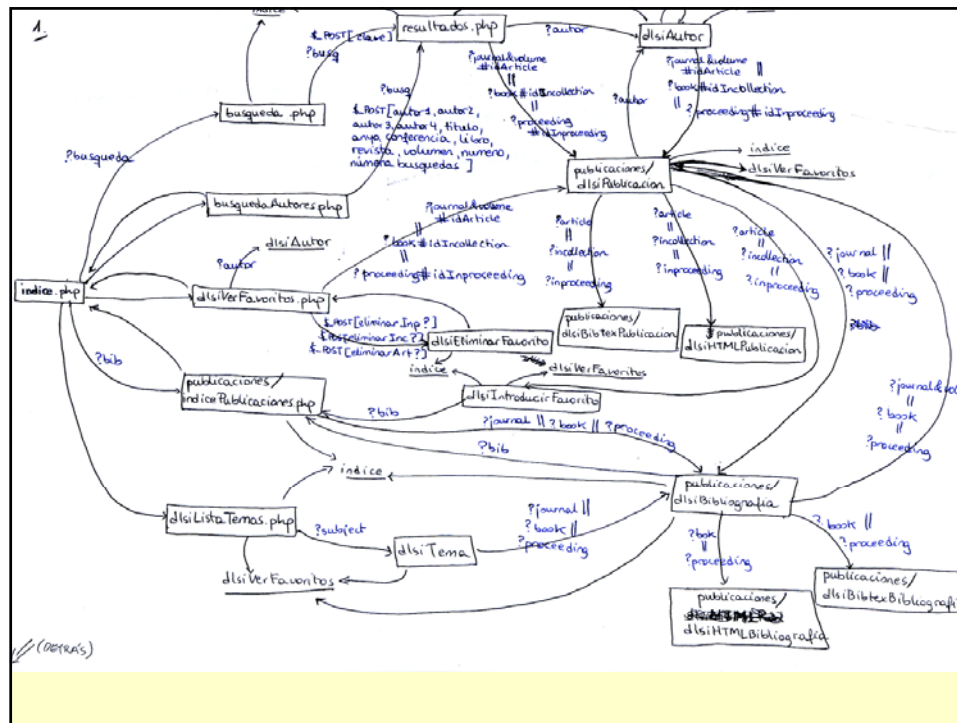 1.
índice
resultados.php
?autor
dlsiAutor
$_POST[clave]
?busq
?journal&volume
#idArticle
||
?book#idIncollection
||
?proceeding
#idInproceeding
?autor
?journal&volume
#idArticle ||
?book#idIncollection
|| ?proceeding#idInproceeding
busqueda.php
?busqueda
?busq
$_POST[autor1, autor2,
autor3, autor4, titulo,
anyo, conferencia, libro,
revista, volumen, numero,
numero busquedas]
índice
dlsiVerFavoritos
publicaciones/
dlsiPublicacion
busquedaAutores.php
dlsiAutor
?autor
?journal&volume
#idArticle
||
?book#idIncollection
||
?proceeding#idInproceeding
?article
||
?incollection
||
?inproceeding
?article
||
?incollection
||
?inproceeding
?article
||
?incollection
||
?inproceeding
?journal ||
?book ||
?proceeding
índice.php
dlsiVerFavoritos.php
$_POST[eliminarInp?]
$_POST[eliminarInc?]
$_POST[eliminarArt?]
dlsiEliminarFavorito
publicaciones/
dlsiBibtexPublicacion
publicaciones/
dlsiHTMLPublicacion
índice
dlsiVerFavoritos
?bib
publicaciones/
indicePublicaciones.php
dlsiIntroducirFavorito
?bib
?journal || ?book || ?proceeding
?bib
?journal&vol
||
?book
||
?proceeding
índice
publicaciones/
dlsiBibliografía
dlsiListaTemas.php
?subject
dlsiTema
?journal ||
?book ||
?proceeding
dlsiVerFavoritos
?book
||
?proceeding
?book ||
?proceeding
publicaciones/
dlsiBibtexBibliografí
publicaciones/
dlsiHTMLBibliografía
(DETRÁS)